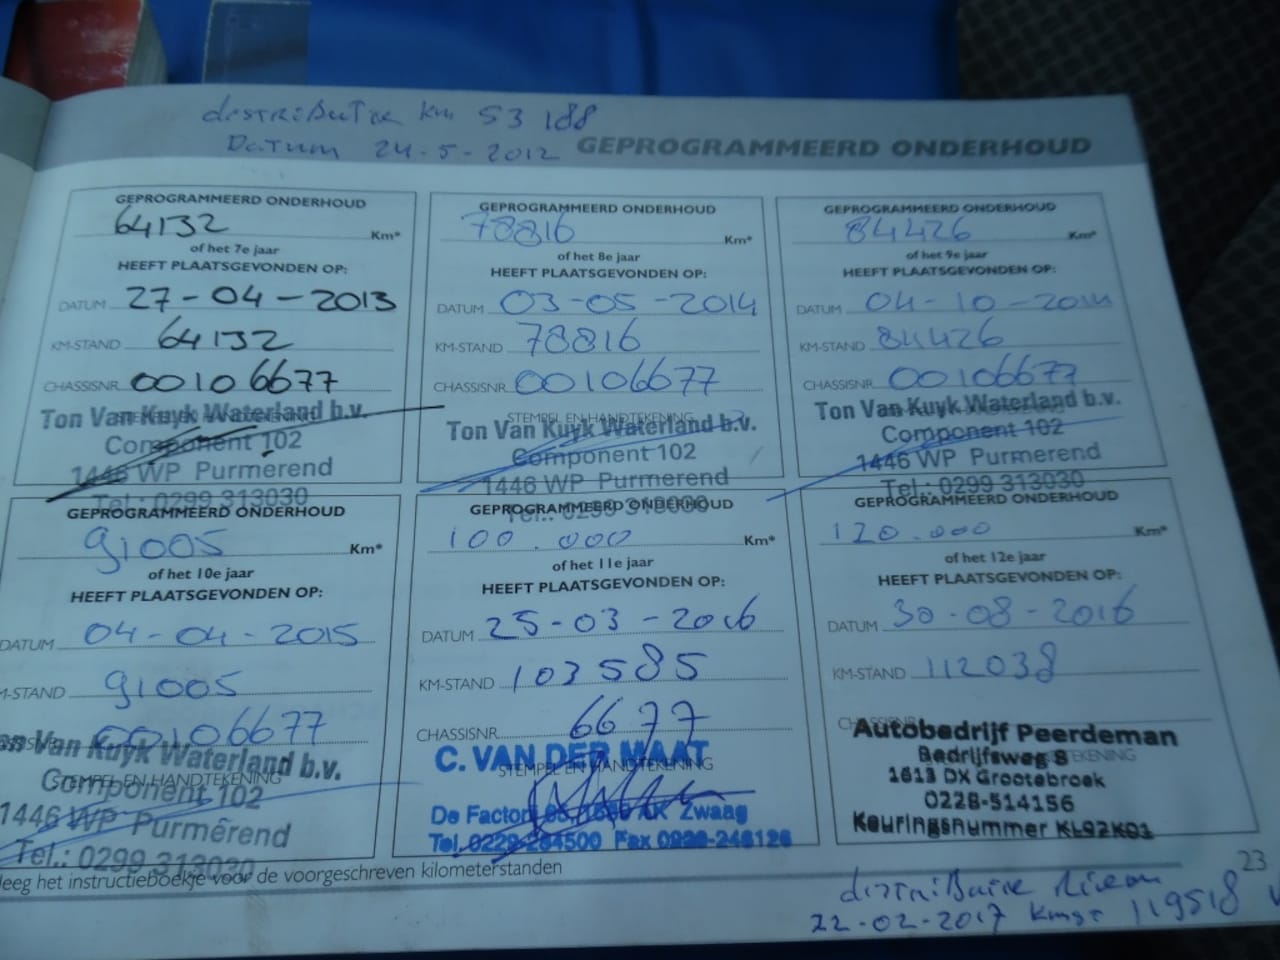 distributie km 53 188
Datum 24-5-2012
GEPROGRAMMEERD ONDERHOUD
GEPROGRAMMEERD ONDERHOUD
64132 Km*
of het 7e jaar
HEEFT PLAATSGEVONDEN OP:
DATUM 27-04-2013
KM-STAND 64132
CHASSISNR. 00106677
STEMPEL EN HANDTEKENING
Ton Van Kuyk Waterland b.v.
Component 102
1446 WP Purmerend
Tel.: 0299 313030
GEPROGRAMMEERD ONDERHOUD
78816 Km*
of het 8e jaar
HEEFT PLAATSGEVONDEN OP:
DATUM 03-05-2014
KM-STAND 78816
CHASSISNR. 00106677
STEMPEL EN HANDTEKENING
Ton Van Kuyk Waterland b.v.
Component 102
1446 WP Purmerend
Tel.: 0299 313030
GEPROGRAMMEERD ONDERHOUD
84426 Km*
of het 9e jaar
HEEFT PLAATSGEVONDEN OP:
DATUM 04-10-2014
KM-STAND 84426
CHASSISNR. 00106677
Ton Van Kuyk Waterland b.v.
Component 102
1446 WP Purmerend
Tel.: 0299 313030
GEPROGRAMMEERD ONDERHOUD
91005 Km*
of het 10e jaar
HEEFT PLAATSGEVONDEN OP:
DATUM 04-04-2015
M-STAND 91005
00106677
on Van Kuyk Waterland b.v.
STEMPEL EN HANDTEKENING
Component 102
1446 WP Purmerend
Tel.: 0299 313030
GEPROGRAMMEERD ONDERHOUD
100.000 Km*
of het 11e jaar
HEEFT PLAATSGEVONDEN OP:
DATUM 25-03-2016
KM-STAND 103585
CHASSISNR. 6677
C. VAN DER MAAT
STEMPEL EN HANDTEKENING
De Factorij Zwaag
Tel. Fax
GEPROGRAMMEERD ONDERHOUD
120.000 Km*
of het 12e jaar
HEEFT PLAATSGEVONDEN OP:
DATUM 30-08-2016
KM-STAND 112038
Autobedrijf Peerdeman
Bedrijfsweg 8
1613 DX Grootebroek
0228-514156
Keuringsnummer KL92K01
leeg het instructieboekje voor de voorgeschreven kilometerstanden
23
distributie riem
22-02-2017 kmst 119518